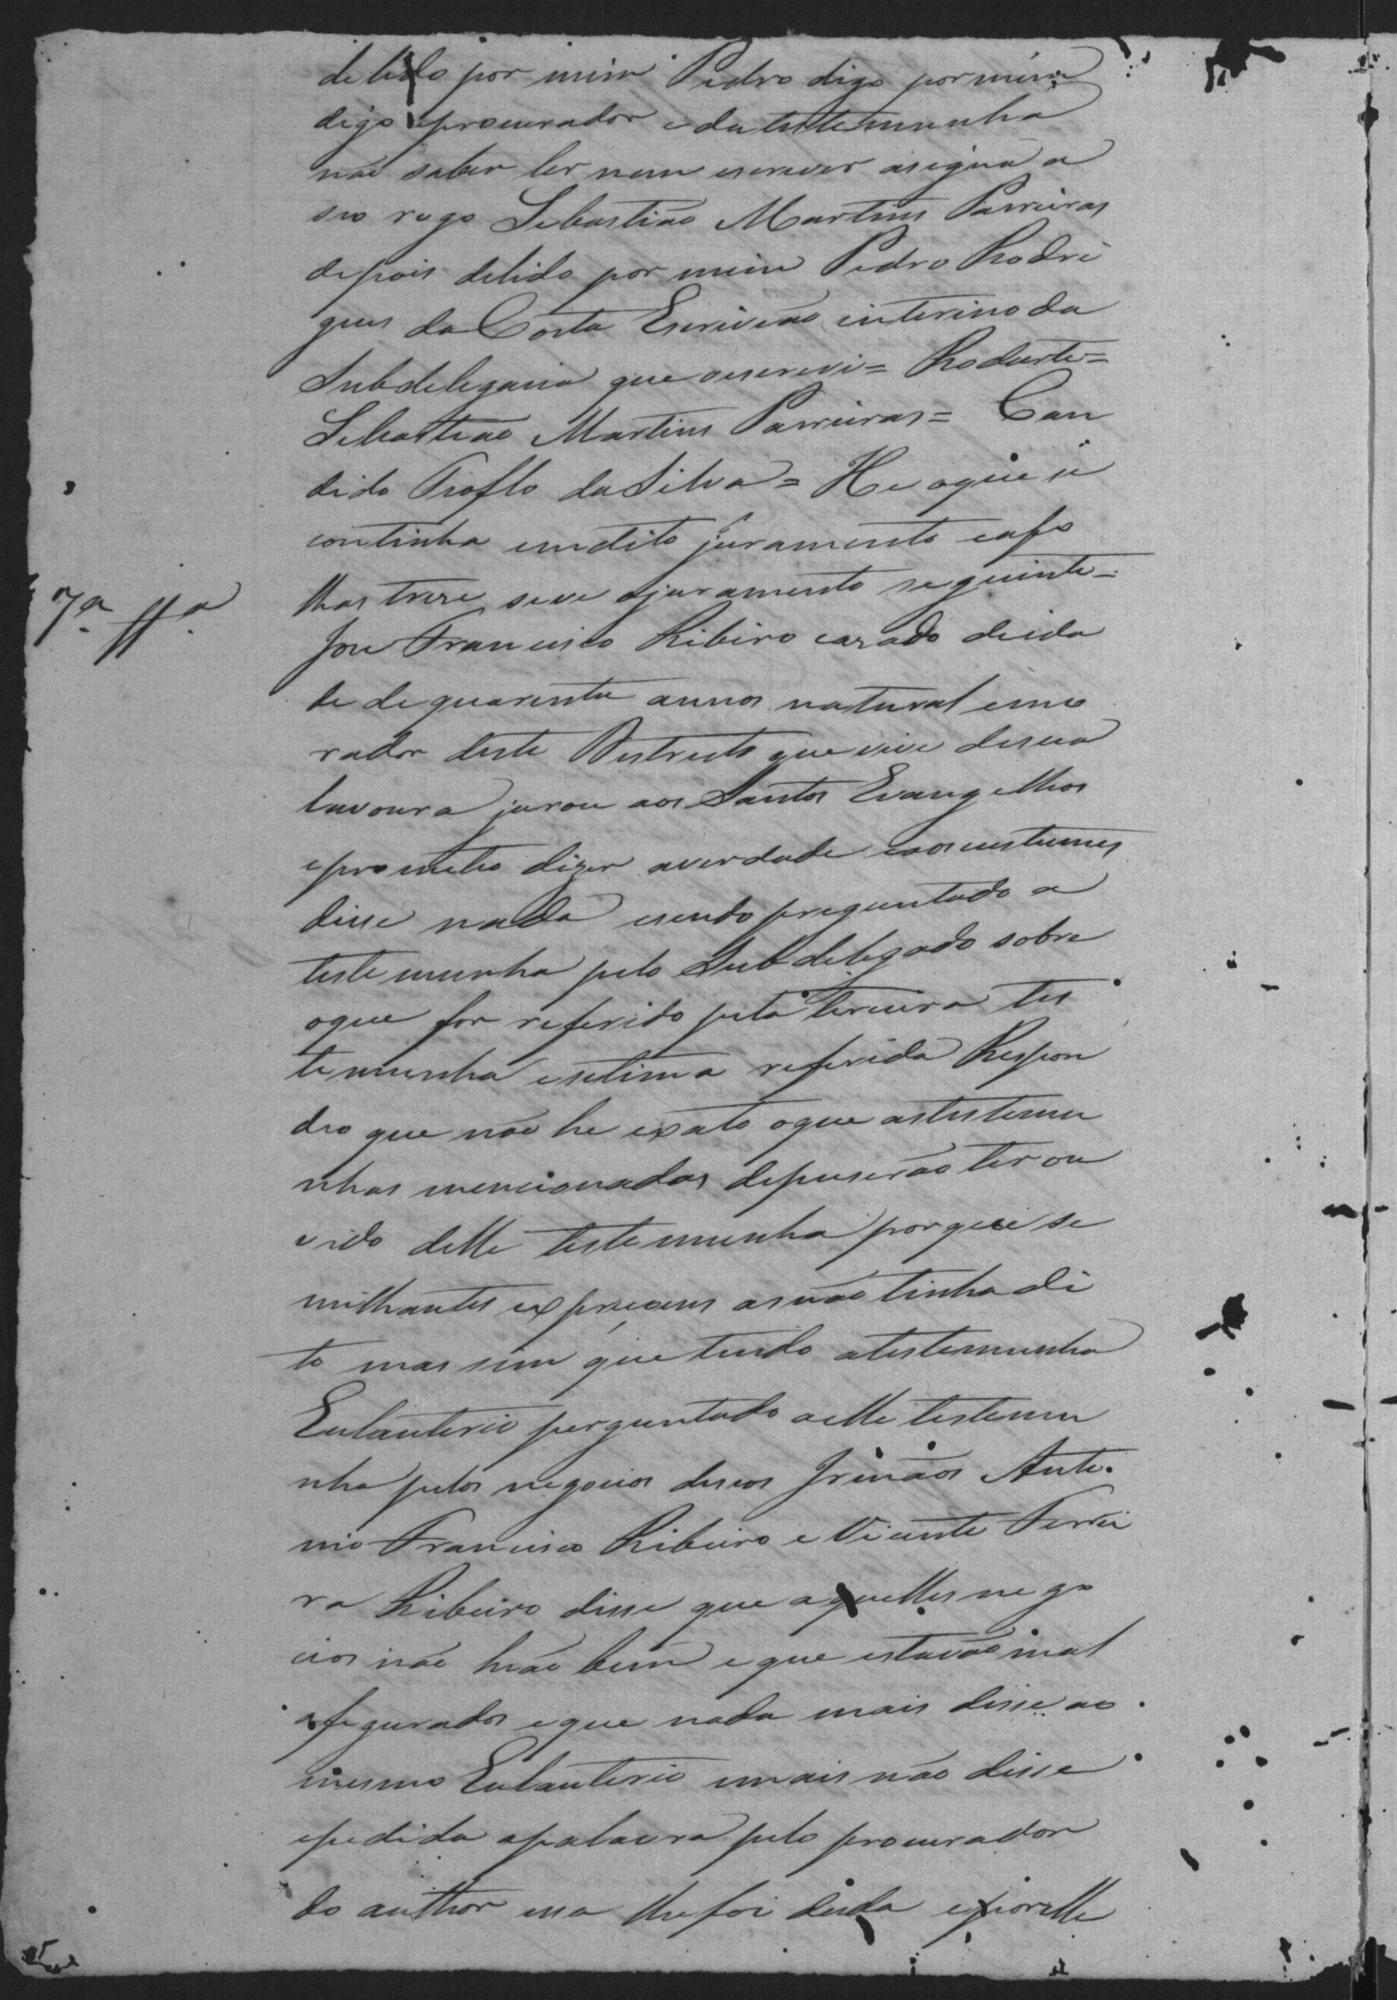 delido por mim Pedro digo por mim
digo oprocurador e da testemunha
não saber ler nem escrever asigna a
seo rogo Sebastião Martins Parreiras
depois delido por mim Pedro Rodri
gues da Costa Escrivão interino da
Subdelegacia que oescrevi = Roduarte =
Sebastiao Martins Parreiras = Can
dido da Silva = He oque se
continha em dito juramento eafo
lhas treze seve ojuramento seguinte =
7ª ttª
Jose Francisco Ribeiro cazado deida
de de quarenta annos natural emo
rador deste Destricto que vive desua
lavoura jurou aos Santos Evangelhos
eprometeo dizer averdade eaoscustumes
disse nada esendo preguntado a
testemunha pelo Subdelegado sobre
oque for referido pela terceira tes
temunha esetima referida Respon
deo que não he exato oque astestemu
nhas mencionadas depuserão ter ou
vido delle testemunha porque se
milhantes expreçoens asnão tinha di
to mas sim que tendo atestemunha
Eulauterio perguntado aelle testemu
nha pelos negocios deseos Irmãos Anto
nio Francisco Ribeiro e Vicente Ferrei
ra Ribeiro disse que aquelles nego
cios não hião bem e que estavão mal
afegurados eque nada mais disse ao
mesmo Eulauterio emais não disse
epedida apalavra pelo procurador
do author esa lhefoi dada epor elle